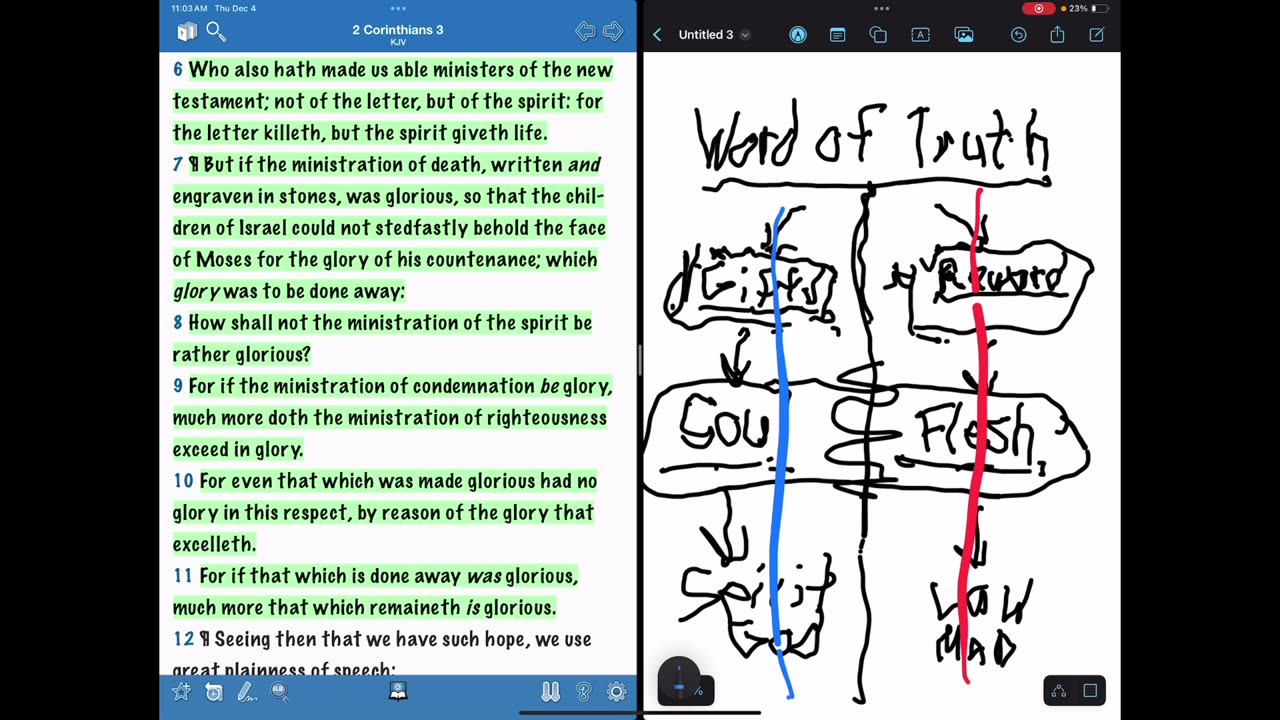 11:03 AM Thu Dec 4
23%
2 Corinthians 3
KJV
6 Who also hath made us able ministers of the new
testament; not of the letter, but of the spirit: for
the letter killeth, but the spirit giveth life.
7 ¶ But if the ministration of death, written and
engraven in stones, was glorious, so that the chil-
dren of Israel could not stedfastly behold the face
of Moses for the glory of his countenance; which
glory was to be done away:
8 How shall not the ministration of the spirit be
rather glorious?
9 For if the ministration of condemnation be glory,
much more doth the ministration of righteousness
exceed in glory.
10 For even that which was made glorious had no
glory in this respect, by reason of the glory that
excelleth.
11 For if that which is done away was glorious,
much more that which remaineth is glorious.
12 ¶ Seeing then that we have such hope, we use
great plainness of speech:
Untitled 3
Word of Truth
Gifts
Reward
Flesh
Spirit
God
Law